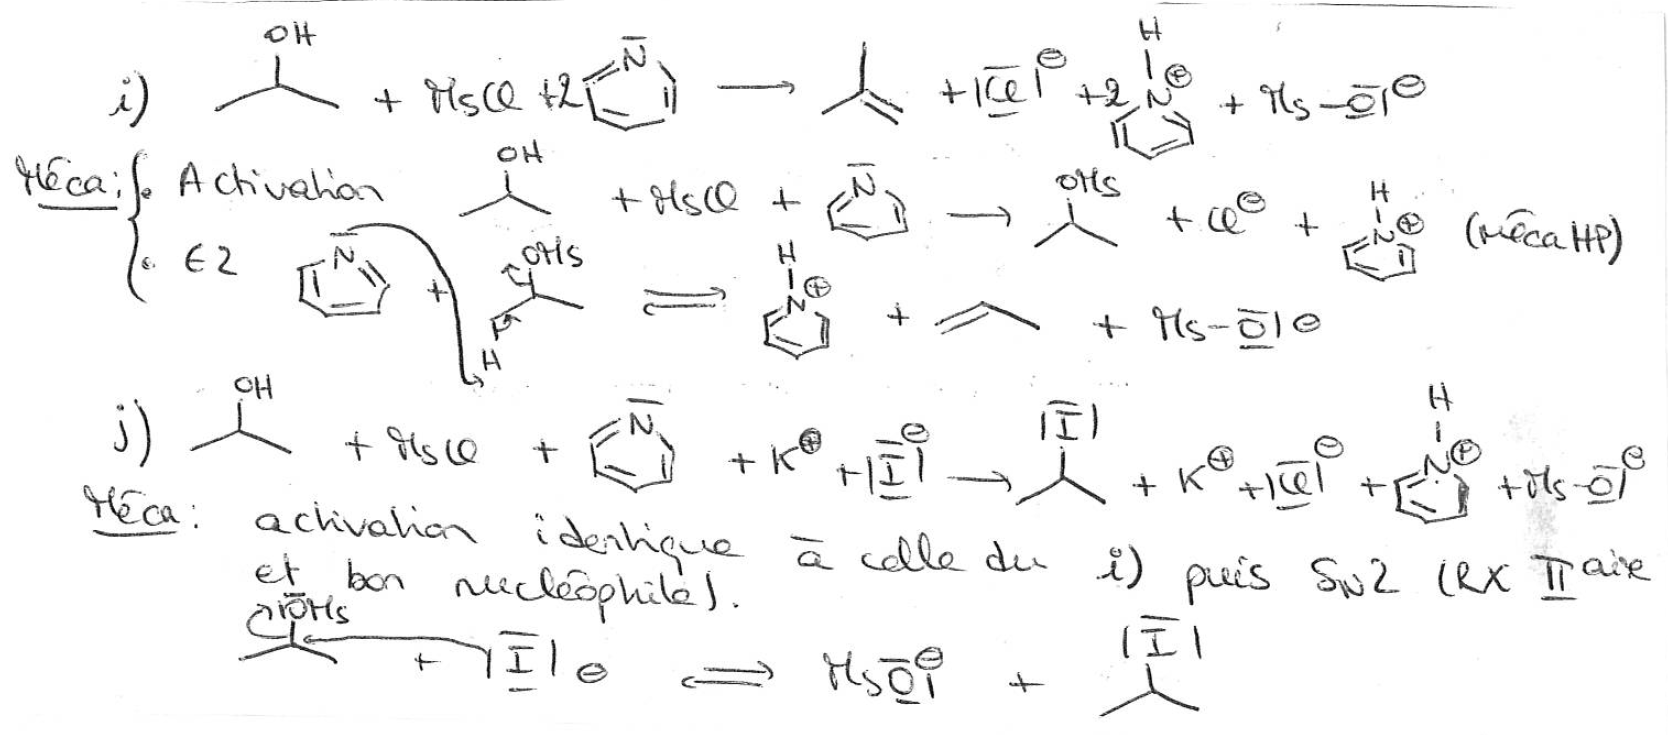 i) OH + MsCl + 2 N̄ → + |C̲̅l|⊖ + 2 H N⊕ + Ms–O̲̅|⊖
Méca: • Activation OH + MsCl + N̄ → OMs + Cl⊖ + H N⊕ (méca HP)
• E2 N̄ + OMs H ⇌ H N⊕ + + Ms–O̲̅|⊖
j) OH + MsCl + N̄ + K⊕ + |I̲̅|⊖ → |I̅| + K⊕ + |C̲̅l|⊖ + H N⊕ + Ms–O̲̅|⊖
Méca: activation identique à celle du i) puis SN2 (RX IIaire
et bon nucléophile).
|O̅Ms + |I̲̅|⊖ ⇌ MsO̲̅|⊖ + |I̅|